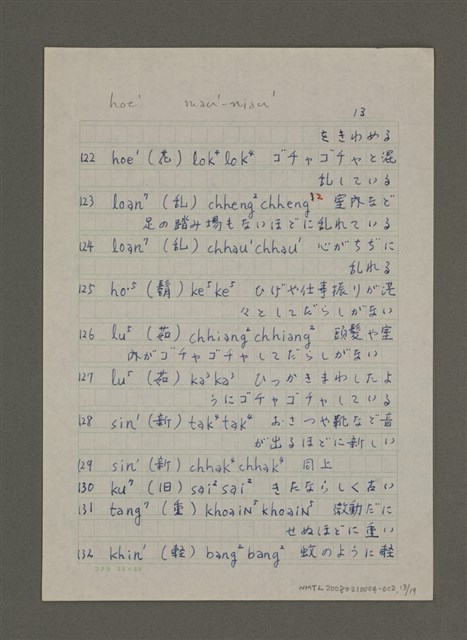 hoe¹ mau¹-niau¹
13
をきわめる
122 hoe¹ (花) lok⁴ lok⁴ ゴチャゴチャと混
乱している
123 loan⁷ (乱) chheng² chheng³² 室内など
足の踏み場もないほどに乱れている
124 loan⁷ (乱) chhau¹ chhau¹ 心がちぢに
乱れる
125 ho·⁵ (鬍) ke⁵ ke⁵ ひげや仕事振りが混
々としてだらしがない
126 lu⁵ (茹) chhiang² chhiang² 頭髪や室
内がゴチャゴチャしてだらしがない
127 lu⁵ (茹) ka³ ka³ ひっかきまわしたよ
うにゴチャゴチャしている
128 sin¹ (新) tak⁴ tak⁴ おさつや靴など音
が出るほどに新しい
129 sin¹ (新) chhak⁴ chhak⁴ 同上
130 ku⁷ (旧) sai² sai² きたならしく古い
131 tang⁷ (重) khoaiN⁵ khoaiN⁵ 微動だに
せぬほどに重い
132 khin¹ (軽) bang² bang² 蚊のように軽
NMTL20080210004-002, 13/19